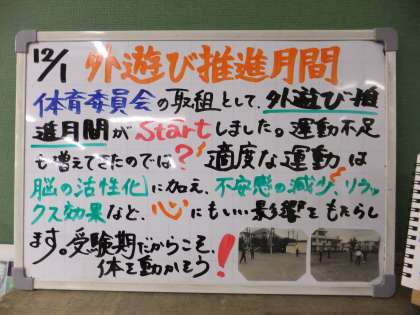 12/1 外遊び推進月間
体育委員会の取組として、外遊び推
進月間がStartしました。運動不足
も増えてきたのでは？適度な運動は
脳の活性化に加え、不安感の減少、リラッ
クス効果など、心にもいい影響をもたらし
ます。受験期だからこそ、
体を動かそう！